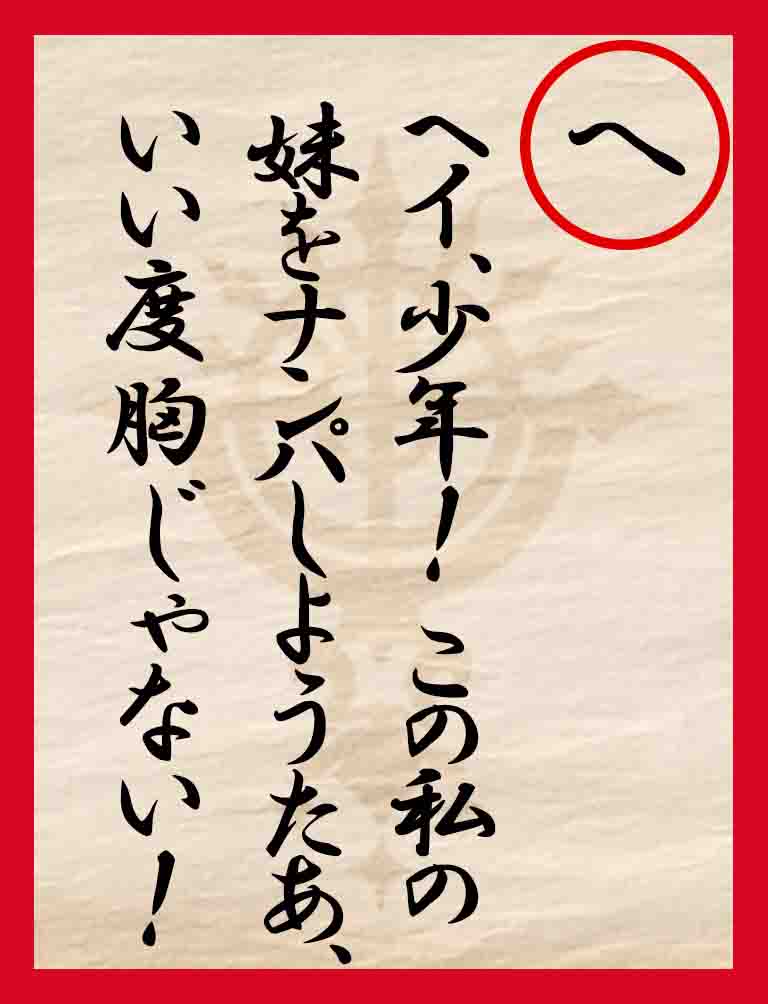 へ
ヘイ、少年！　この私の
妹をナンパしようたあ、
いい度胸じゃない！